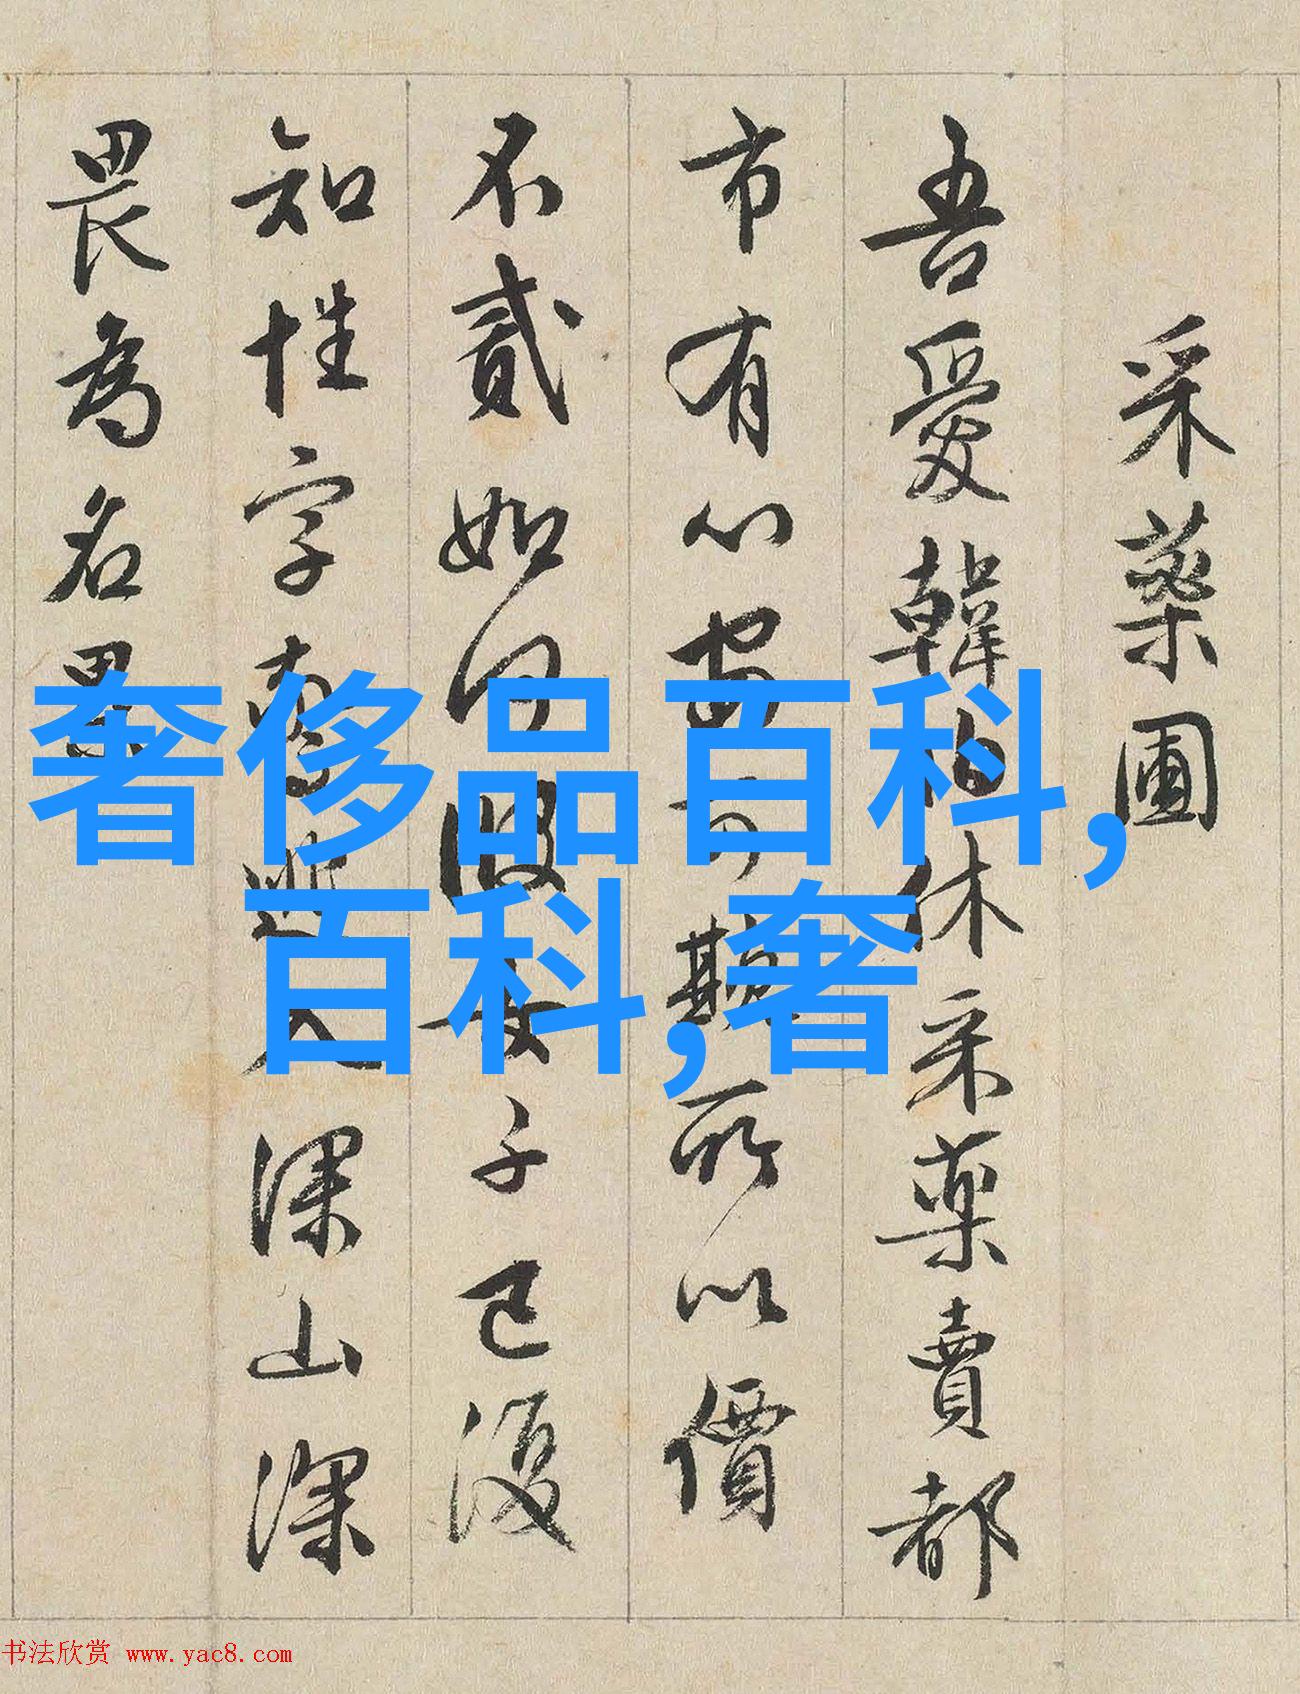 采藥圃
吾愛韓伯休采藥賣都
市有心安可欺所以價
不貳如何彼女子已復
知性字逃入深山深
畏為名累
奢侈品百科,
百科,奢
书法欣赏 www.yac8.com